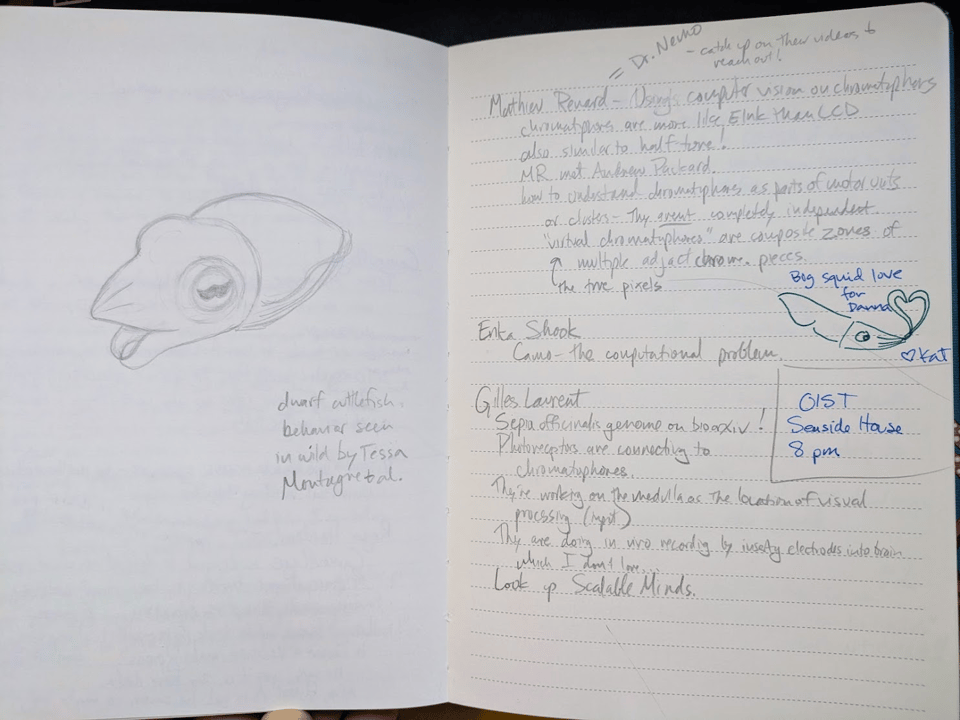 dwarf cuttlefish.
behavior seen
in wild by Tessa
Montague et al.
= Dr. Neuro
- catch up on their videos to
reach out!
Mathieu Renard - Using computer vision on chromatophores
chromatphores are more like EInk than LCD
also similar to half-tone!
MR met Andrew Packard.
how to understand chromatphores as parts of motor units
or clusters - They arent completely independent.
"virtual chromatophores" are composite zones of
multiple adjact chrome. pieces.
the true pixels
Big squid love
for
Danna
♡ Kat
Erika Shook
Camo - the computational problem.
OIST
Seaside House
8 pm
Gilles Laurent
Sepia officinalis genome on bioarxiv!
Photoreceptors are connecting to
chromatuphores.
They're working on the medulla as the location of visual
processing (input)
They are doing in vivo recording by electrodes into brain
which I don't love...
Look up Scalable Minds.